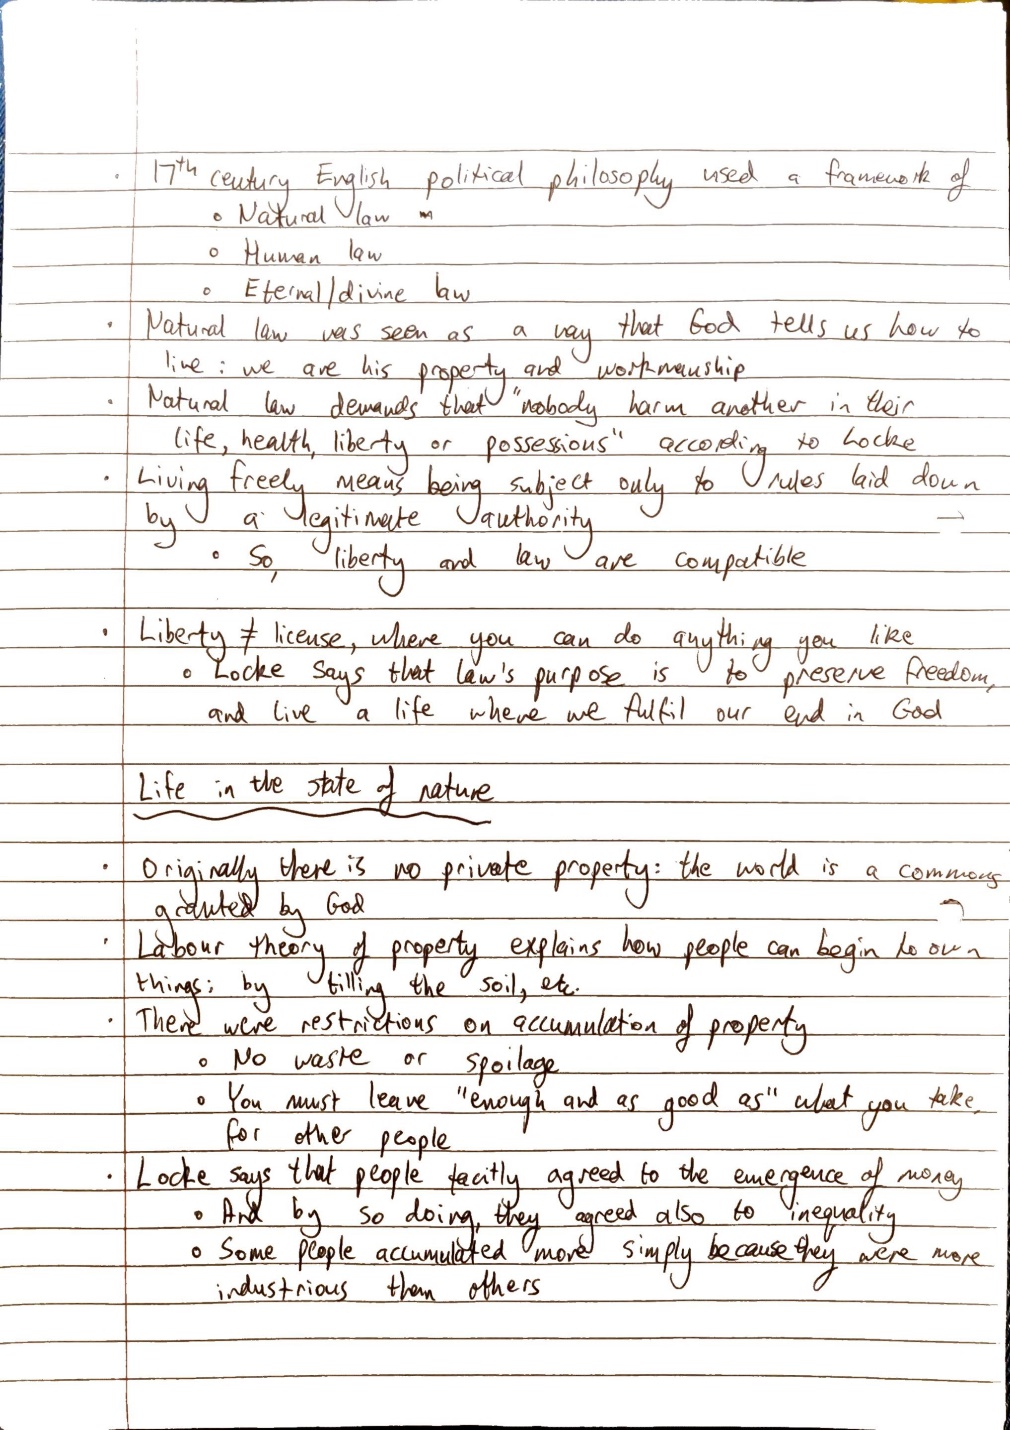 · 17th century English political philosophy used a framework of
o Natural law
o Human law
o Eternal/divine law
· Natural law was seen as a way that God tells us how to
live : we are his property and workmanship
· Natural law demands that "nobody harm another in their
life, health, liberty or possessions" according to Locke
· Living freely means being subject only to rules laid down
by a legitimate authority
o So, liberty and law are compatible
· Liberty ≠ license, where you can do anything you like
o Locke says that law's purpose is to preserve freedom,
and live a life where we fulfil our end in God
Life in the state of nature
· Originally there is no private property: the world is a commons
granted by God
· Labour theory of property explains how people can begin to own
things: by tilling the soil, etc.
· There were restrictions on accumulation of property
o No waste or spoilage
o You must leave "enough and as good as" what you take,
for other people
· Locke says that people tacitly agreed to the emergence of money
o And by so doing, they agreed also to inequality
o Some people accumulated more simply because they were more
industrious than others